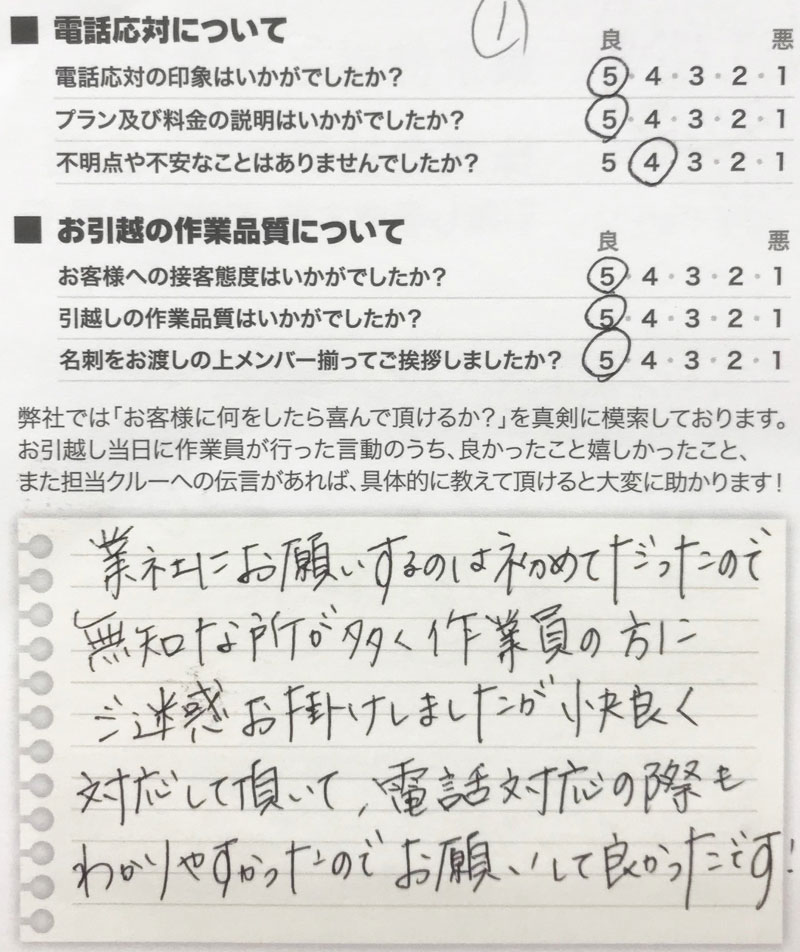 ①
■ 電話応対について
良 悪
電話応対の印象はいかがでしたか？ 5・4・3・2・1
プラン及び料金の説明はいかがでしたか？ 5・4・3・2・1
不明点や不安なことはありませんでしたか？ 5 4 3・2・1
■ お引越の作業品質について
良 悪
お客様への接客態度はいかがでしたか？ 5・4・3・2・1
引越しの作業品質はいかがでしたか？ 5・4・3・2・1
名刺をお渡しの上メンバー揃ってご挨拶しましたか？ 5・4・3・2・1
弊社では「お客様に何をしたら喜んで頂けるか？」を真剣に模索しております。
お引越し当日に作業員が行った言動のうち、良かったこと嬉しかったこと、
また担当クルーへの伝言があれば、具体的に教えて頂けると大変に助かります！
業社にお願いするのは初めてだったので
無知な所が多く作業員の方に
ご迷惑お掛けしましたが快良く
対応して頂いて、電話対応の際も
わかりやすかったのでお願いして良かったです！